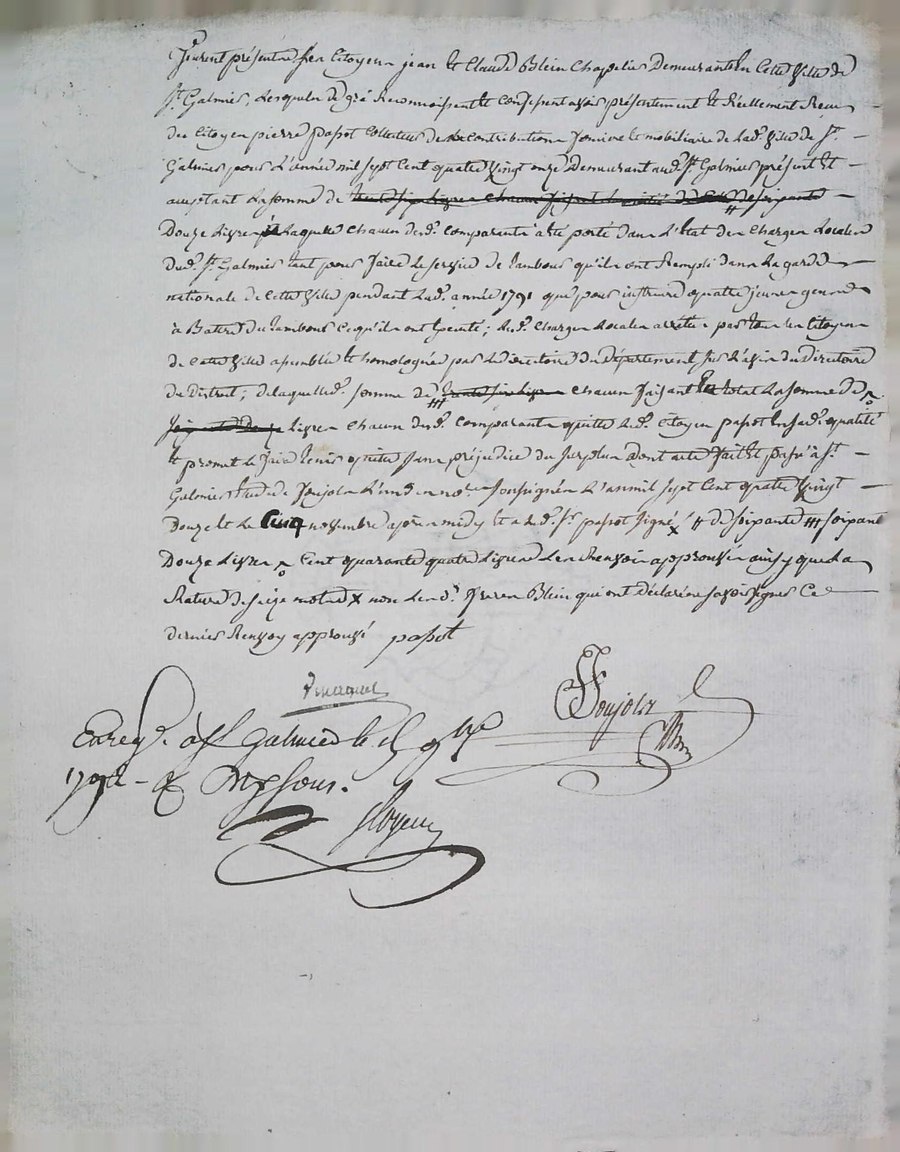 furent présents les Citoyens jean et Claude Blein Chapeliers Demeurants En Cette Ville de
St. Galmier, Lesquels de gré Reconnoissent et Confessent avoir présentement et Réellement Recu
du Citoyen pierre papot Collecteur de la Contribution fonciere et mobiliaire de Lad. Ville de St.
Galmier pour L'année mil sept Cent quatre Vingt onze Demeurant aud. St. Galmier présent et
acceptant La somme de trente six Livres chacun faisant la moitié de Celle de soixante
Douze Livres Laquelle chacun desd. Comparants a été porté dans L'état des Charges Locales
Dud. St. Galmier tant pour faire Le service de tambour qu'ils ont Rempli dans La garde
nationale de Cette Ville pendant Lad. année 1791 que pour instruire quatre jeunes gens
à Battre du tambour Ce qu'ils ont Exécuté; Lesd. Charges Locales arrêtées par tous Les Citoyens
de Cette Ville assemblée et homologuée par Le directoire du Département sur L'avis du Directoire
du District; de laquelle d. somme de ₶ trente six Livres Chacun faisant En total La somme de
soixante Douze Livres Chacun desd. Comparants quitte Led. Citoyen papot En sad. qualité
et promet Le faire tenir quitte sans préjudice du surplus dont acte fait et passé à St.
Galmier Etude de Soujols L'un des nores. soussignés L'an mil sept Cent quatre Vingt
Douze et Le Cinq novembre après midy Et a Led. Sr. papot signé x # de soixante ### soixante
Douze Livres Cent quarante quatre Livres Les Renvois approuvés ainsy que La
Rature de seize mots x non Lesd. frères Blein qui ont déclaré ne savoir signer Ce
dernier Renvoy approuvé papot
Soujols
Enregé. à St Galmier le 9bre
1792 - Sous.